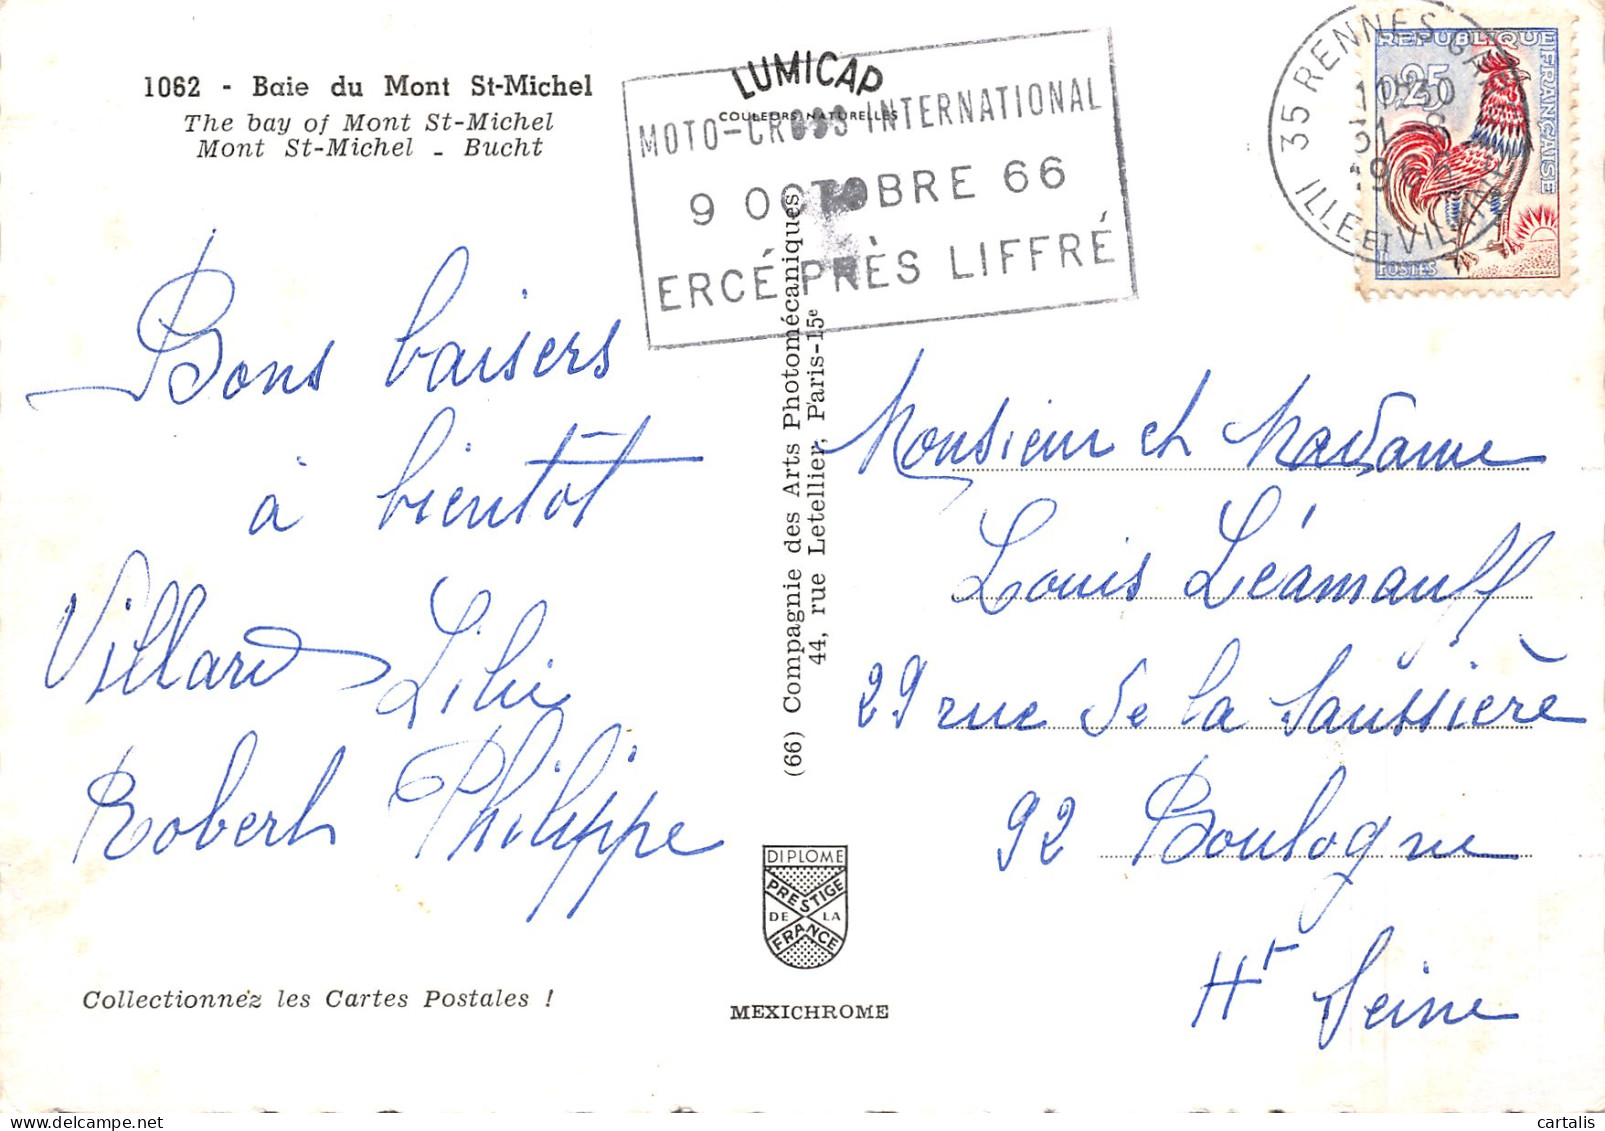 1062 - Baie du Mont St-Michel
The bay of Mont St-Michel
Mont St-Michel - Bucht
LUMICAP
COULEURS NATURELLES
MOTO-CROSS INTERNATIONAL
9 OCTOBRE 66
ERCÉ PRÈS LIFFRÉ
35 RENNES GARE
ILLE ET VILAINE
REPUBLIQUE FRANÇAISE
0,25
POSTES
DECARIS
Bons baisers
à bientôt
Villard Lilie
Robert Philippe
(66) Compagnie des Arts Photomécaniques
44, rue Letellier, Paris-15e
Monsieur et Madame
Louis Léamauff
29 rue de la Saussière
92 Boulogne
Ht Seine
DIPLOME
PRESTIGE
DE LA
FRANCE
MEXICHROME
Collectionnez les Cartes Postales !
cartalis